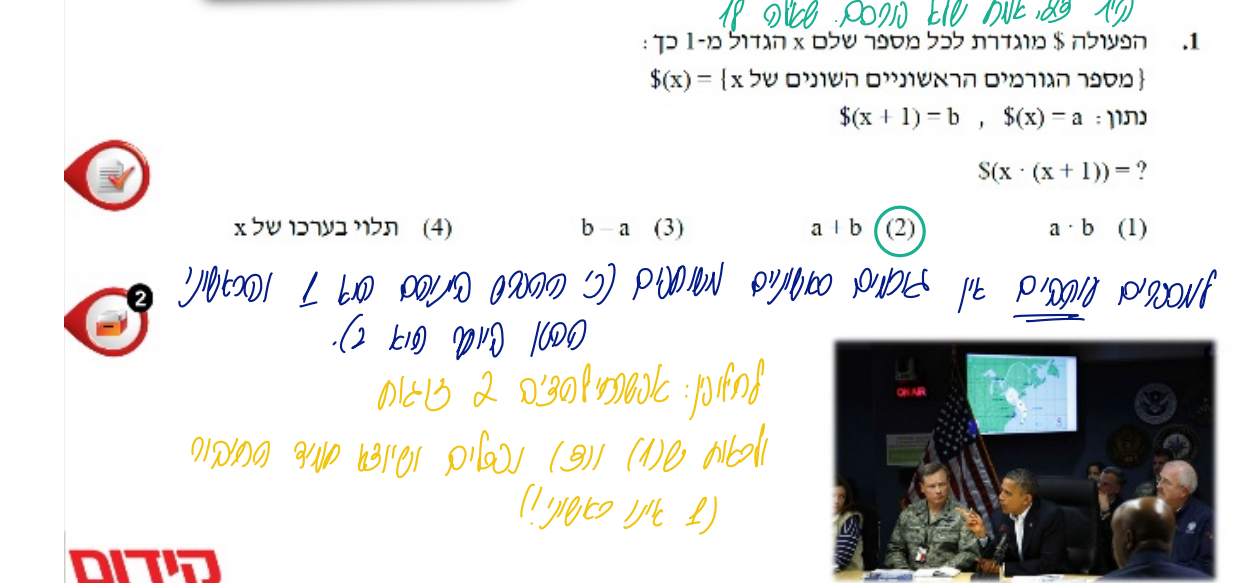 היו עד, אות שלא הורסת. שאלה 18
1. הפעולה $ מוגדרת לכל מספר שלם x הגדול מ-1 כך:
$(x) = {מספר הגורמים הראשוניים השונים של x}
נתון: $(x) = a , $(x + 1) = b
$(x · (x + 1)) = ?
(1) a · b (2) a + b (3) b – a (4) תלוי בערכו של x
למספרים עוקבים אין גורמים ראשוניים משותפים (כי ההפרש ביניהם הוא 1 והראשוני
הקטן ביותר הוא 2).
2
לחלופין: אפשר להציב 2 זוגות
ולראות ש(1) ו(3) נפסלים ושיוצא תמיד החיבור
(1 אינו ראשוני!)
ON AIR
קידום